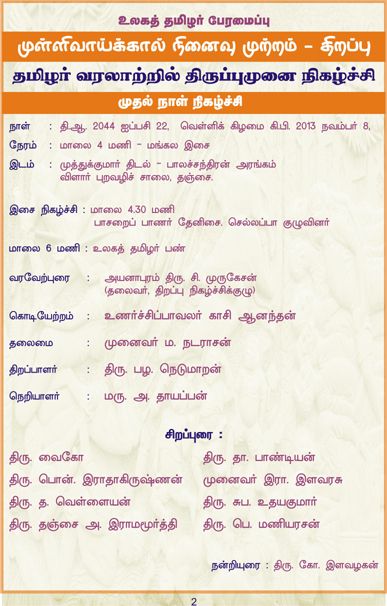 உலகத் தமிழர் பேரமைப்பு
முள்ளிவாய்க்கால் நினைவு முற்றம் - திறப்பு
தமிழர் வரலாற்றில் திருப்புமுனை நிகழ்ச்சி
முதல் நாள் நிகழ்ச்சி
நாள் : தி.ஆ. 2044 ஐப்பசி 22, வெள்ளிக் கிழமை கி.பி. 2013 நவம்பர் 8,
நேரம் : மாலை 4 மணி - மங்கல இசை
இடம் : முத்துக்குமார் திடல் - பாலச்சந்திரன் அரங்கம்
விளார் புறவழிச் சாலை, தஞ்சை.
இசை நிகழ்ச்சி : மாலை 4.30 மணி
பாசறைப் பாணர் தேனிசை. செல்லப்பா குழுவினர்
மாலை 6 மணி : உலகத் தமிழர் பண்
வரவேற்புரை : அயனாபுரம் திரு. சி. முருகேசன்
(தலைவர், திறப்பு நிகழ்ச்சிக்குழு)
கொடியேற்றம் : உணர்ச்சிப்பாவலர் காசி ஆனந்தன்
தலைமை : முனைவர் ம. நடராசன்
திறப்பாளர் : திரு. பழ. நெடுமாறன்
நெறியாளர் : மரு. அ. தாயப்பன்
சிறப்புரை :
திரு. வைகோ திரு. தா. பாண்டியன்
திரு. பொன். இராதாகிருஷ்ணன் முனைவர் இரா. இளவரசு
திரு. த. வெள்ளையன் திரு. சுப. உதயகுமார்
திரு. தஞ்சை அ. இராமமூர்த்தி திரு. பெ. மணியரசன்
நன்றியுரை : திரு. கோ. இளவழகன்
2